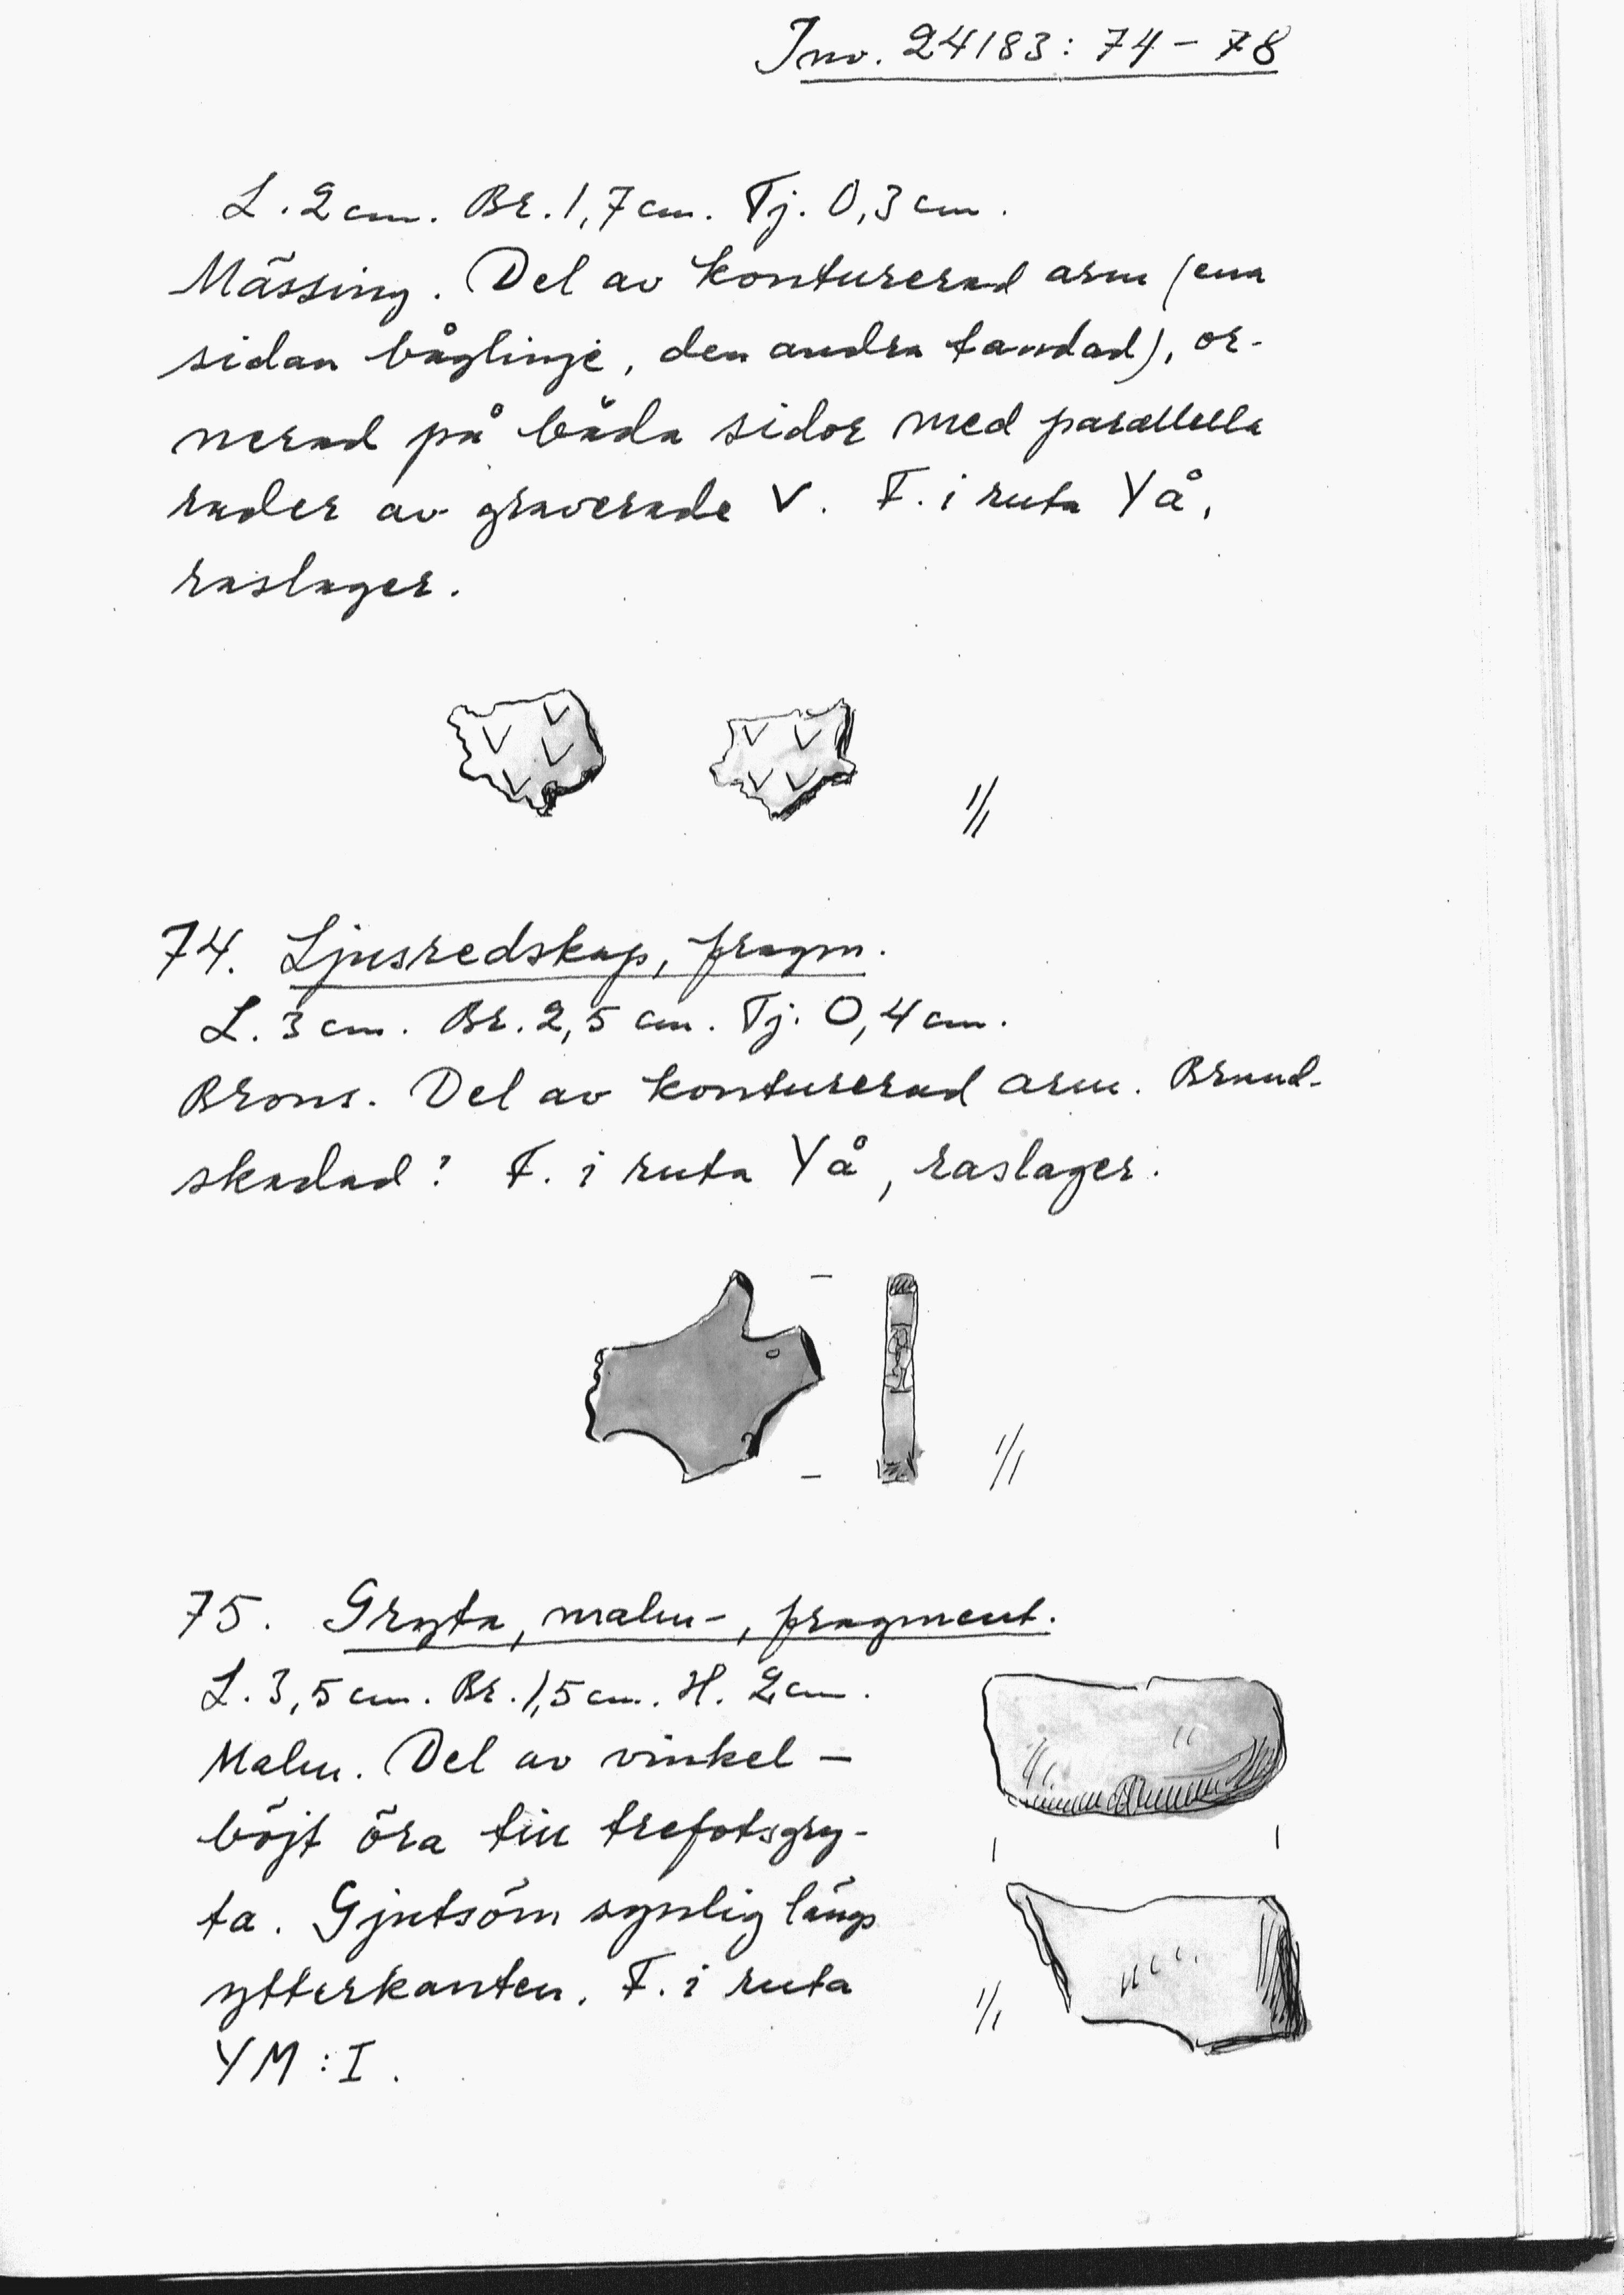 Inv. 24183: 74 – 78
L. 2 cm. Br. 1,7 cm. Tj. 0,3 cm.
Mässing. Del av konturerad arm (ena
sidan båglinje, den andra tandad), or-
nerad på båda sidor med parallella
rader av graverade V. F. i ruta YÅ,
raslager.
1/1
74. Ljusredskap, fragm.
L. 3 cm. Br. 2,5 cm. Tj. 0,4 cm.
Brons. Del av konturerad arm. Brand-
skadad? F. i ruta YÅ, raslager.
1/1
75. Gryta, malm-, fragment.
L. 3,5 cm. Br. 1,5 cm. H. 2 cm.
Malm. Del av vinkel –
böjt öra till trefotsgry-
ta. Gjutsöm synlig längs
ytterkanten. F. i ruta
YM : I.
1/1